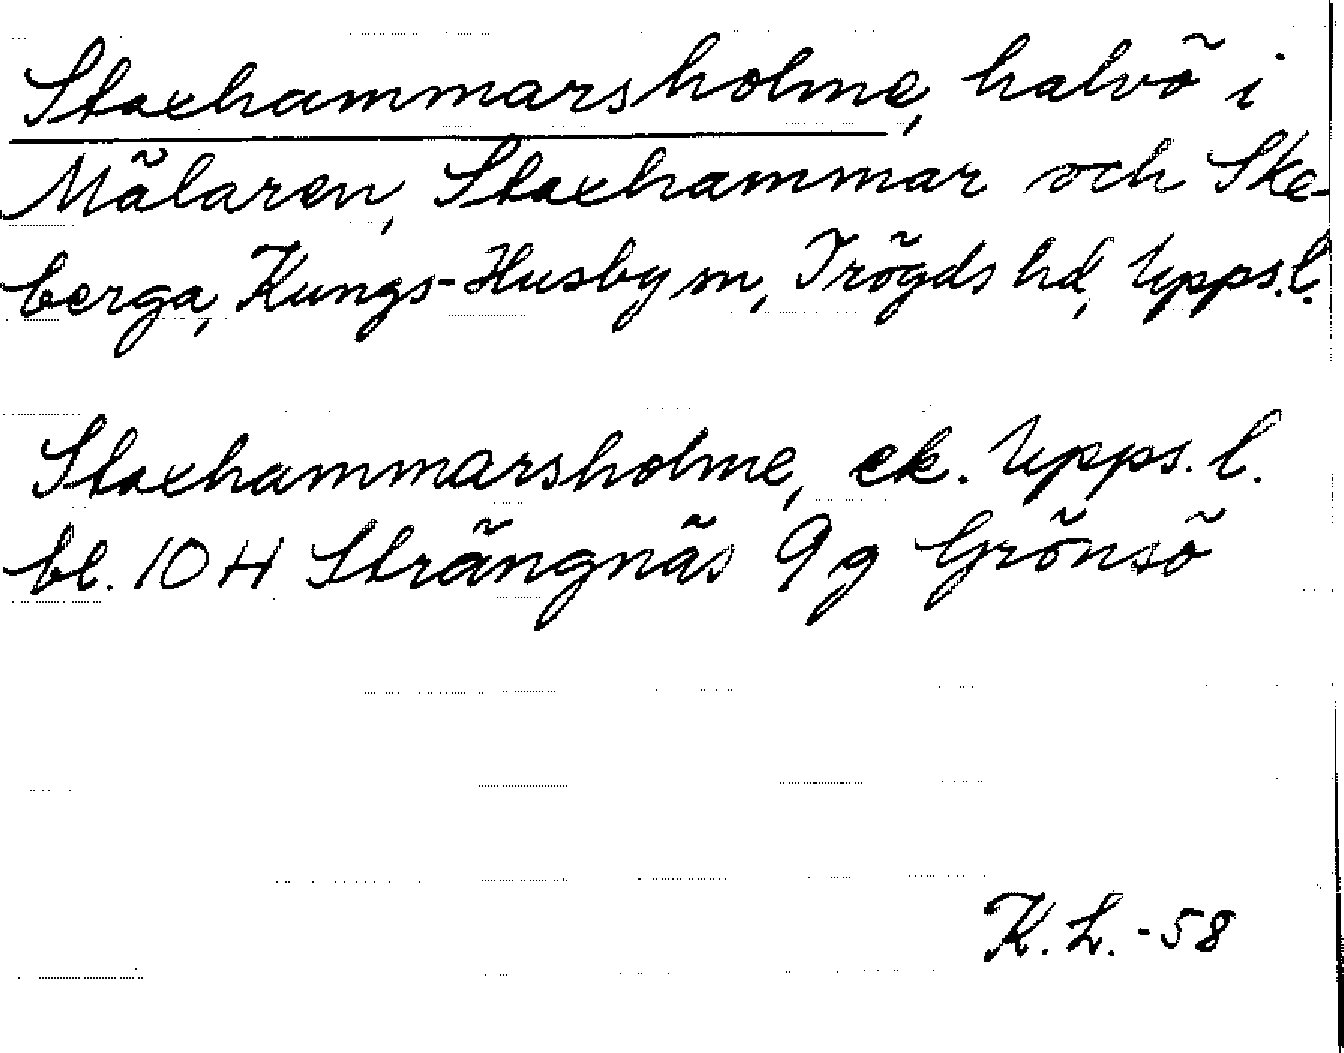 Staxhammarsholme, halvö i
Mälaren, Staxhammar och Ske-
berga, Kungs-Husby sn, Trögds hd, Upps.l.
Staxhammarsholme, ek. Upps. l.
bl. 10 H Strängnäs 9 g Grönsö
K.L.-58